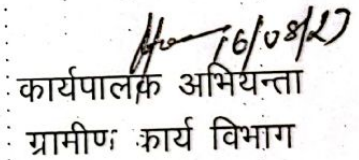 16/08/23
कार्यपालक अभियन्ता
ग्रामीण कार्य विभाग